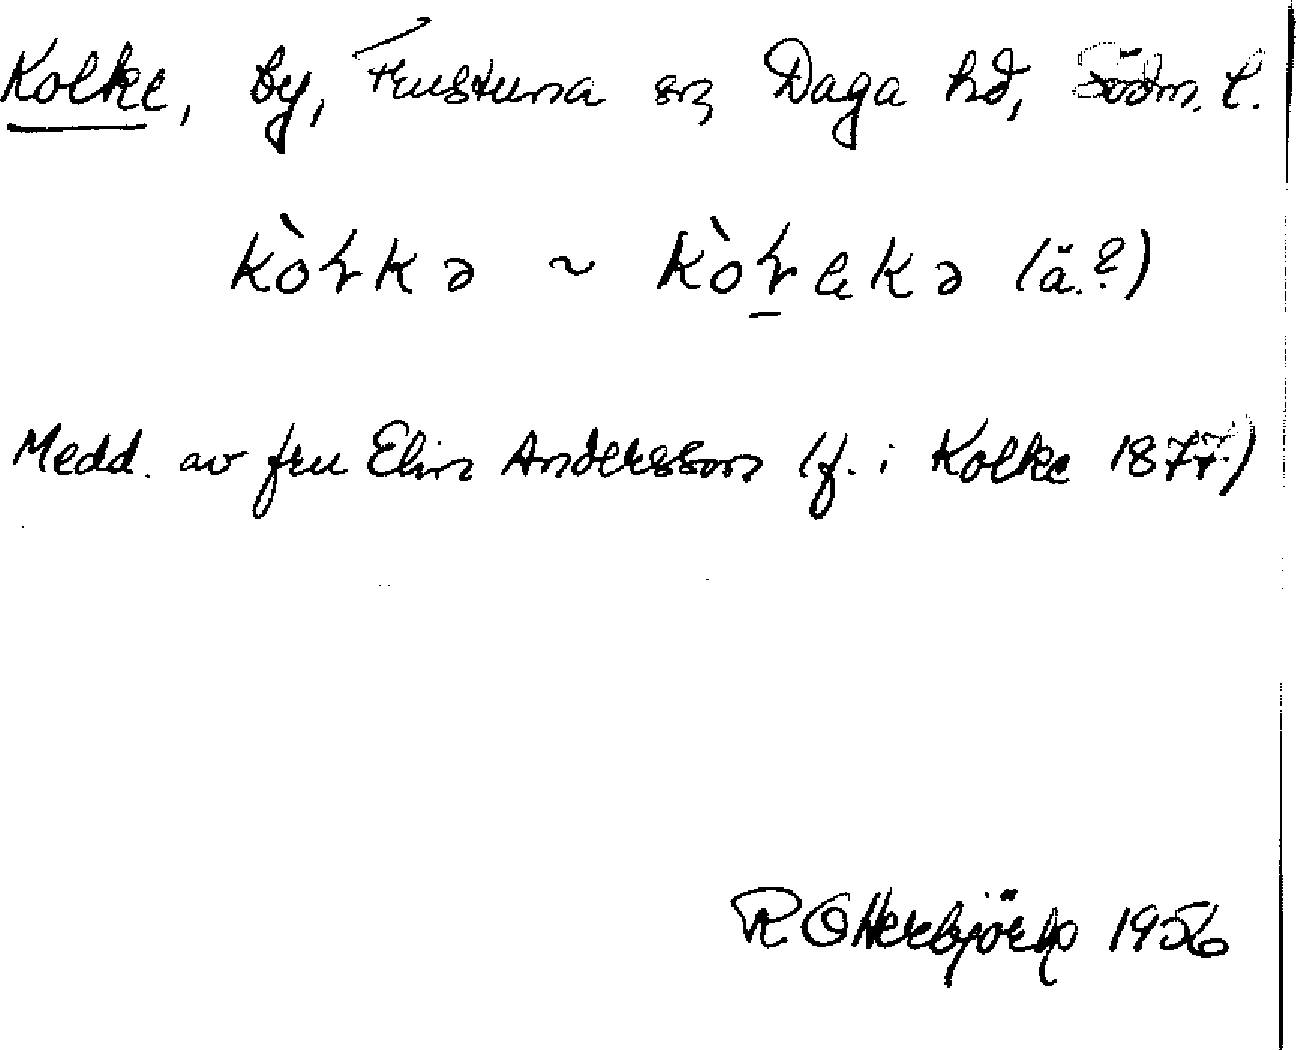 Kolke, by, Frustuna sn, Daga hd, Södm. l.
kòⱡkə ~ kòⱡekə (ä.?)
Medd. av fru Elin Andersson (f. i Kolke 1877.)
R Otterbjörk 1956